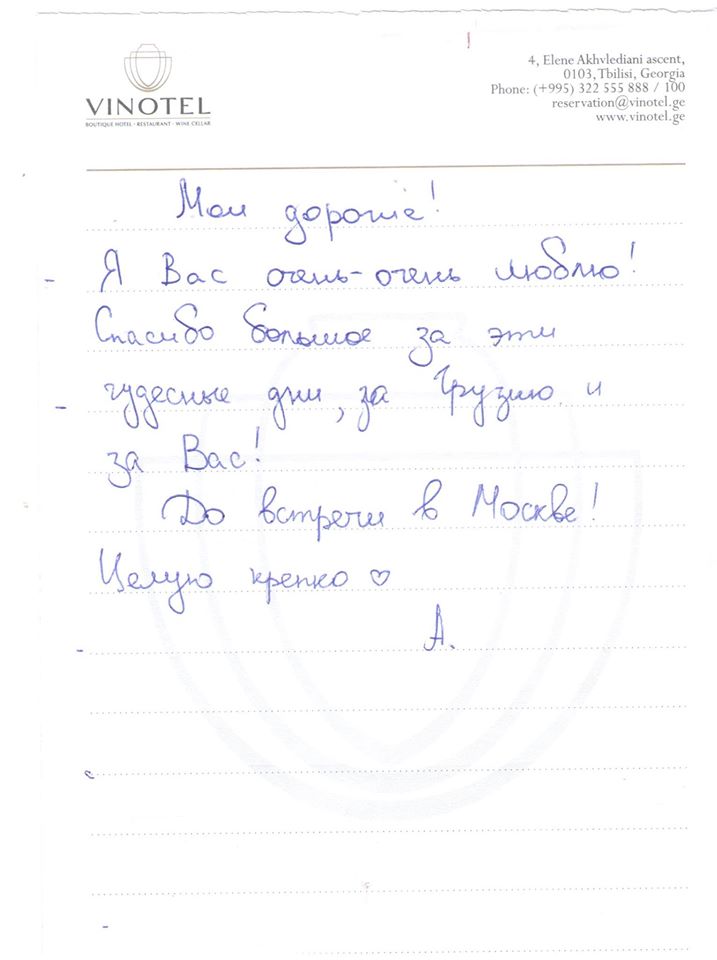 VINOTEL
BOUTIQUE HOTEL · RESTAURANT · WINE CELLAR
4, Elene Akhvlediani ascent,
0103, Tbilisi, Georgia
Phone: (+995) 322 555 888 / 100
reservation@vinotel.ge
www.vinotel.ge
Мои дорогие!
Я Вас очень-очень люблю!
Спасибо большое за эти
чудесные дни, за Грузию и
за Вас!
До встречи в Москве!
Целую крепко ♡
А.